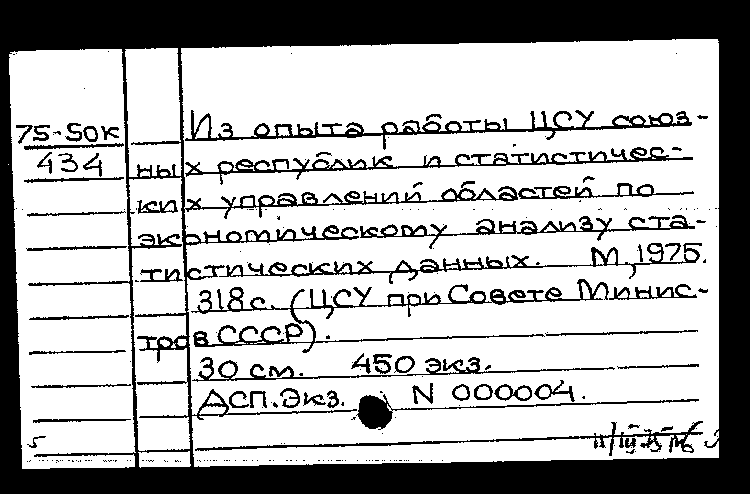 75-50к
434
Из опыта работы ЦСУ союз-
ных республик и статистичес-
ких управлений областей по
экономическому анализу ста-
тистических данных. М., 1975.
318 с. (ЦСУ при Совете Минис-
тров СССР).
30 см. 450 экз.
ДСП. Экз. N 000004.
5